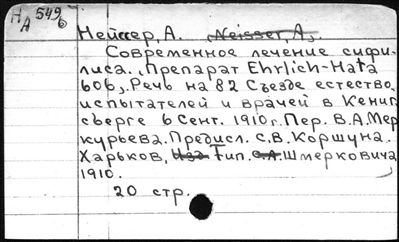 Н/А 549/6
Нейссер, А. Neisser, A.
Современное лечение сифи-
лиса. (Препарат Ehrlich-Hata
606). Речь на 82 Съезде естество-
испытателей и врачей в Кениг-
сберге 6 Сент. 1910 г. Пер. В.А. Мер
курьева. Предисл. С.В. Коршуна.
Харьков, Изд. Тип. С.А. Шмерковича
1910.
20 стр.